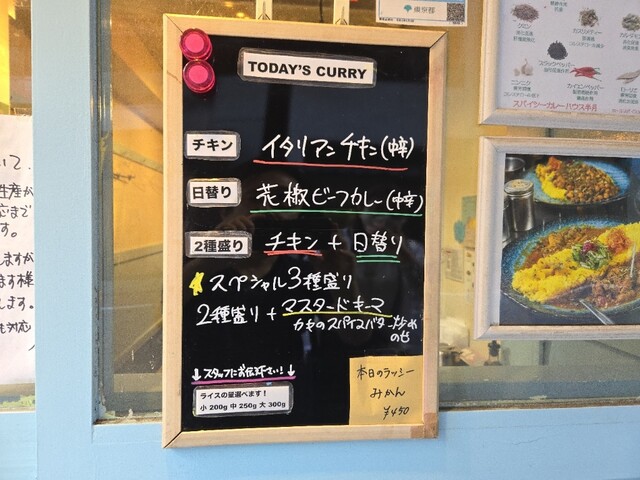 東京都
TODAY'S CURRY
チキン イタリアンチキン(中辛)
日替り 花椒ビーフカレー(中辛)
2種盛り チキン + 日替り
スペシャル3種盛り
2種盛り + マスタードキーマ
カキのスパイスバター炒め
のせ
↓スタッフにお伝え下さい!↓
ライスの量選べます!
小 200g 中 250g 大 300g
本日のラッシー
みかん
¥450
ブラックペッパー
カイエンペッパー
スパイシーカレーハウス半月